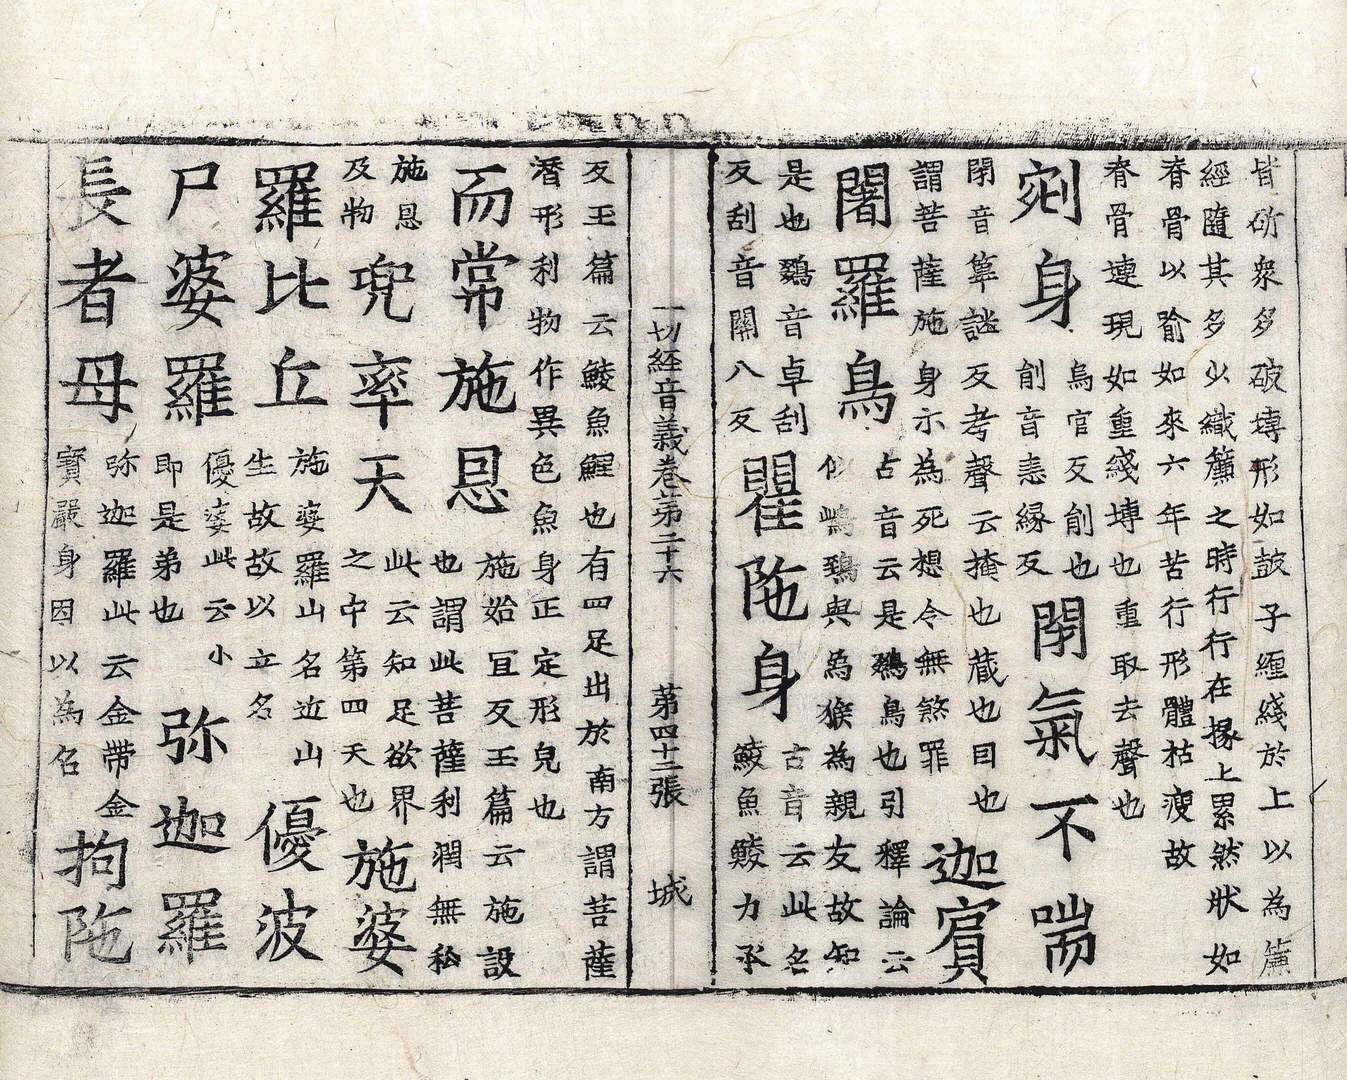 皆斫衆多破塼形如皷子纏綫於上以為簾
經隨其多少織簾之時行行在掾上累然狀如
脊骨以喻如來六年苦行形體枯瘦故
脊骨連現如重綫塼也重取去聲也
剜身
烏官反削也
削音恚縁反
閇氣不喘
閇音箄謎反考聲云掩也蔵也目也
謂菩薩施身示為死想令無煞罪
迦賔
闍羅鳥
占音云是鵽鳥也引釋論云
似鵄鵄與為猴為親友故知
是也鵽音卓刮
反刮音關八反
瞿陁身
古音云此名
鯪魚鯪力承
一切經音義卷第二十六 第四十三張 城
反玉篇云鯪魚鯉也有四足出於南方謂菩薩
潛形利物作異色魚身正定形皃也
而常施恩
施始冝反玉篇云施設
也謂此菩薩利潤無私
施恩
及物
兜率天
此云知足欲界
之中第四天也
施婆
羅比丘
施婆羅山名近山
生故故以立名
優波
尸婆羅
優婆此云小
即是弟也
弥迦羅
長者母
弥迦羅此云金带金
寳嚴身因以為名
拘陁